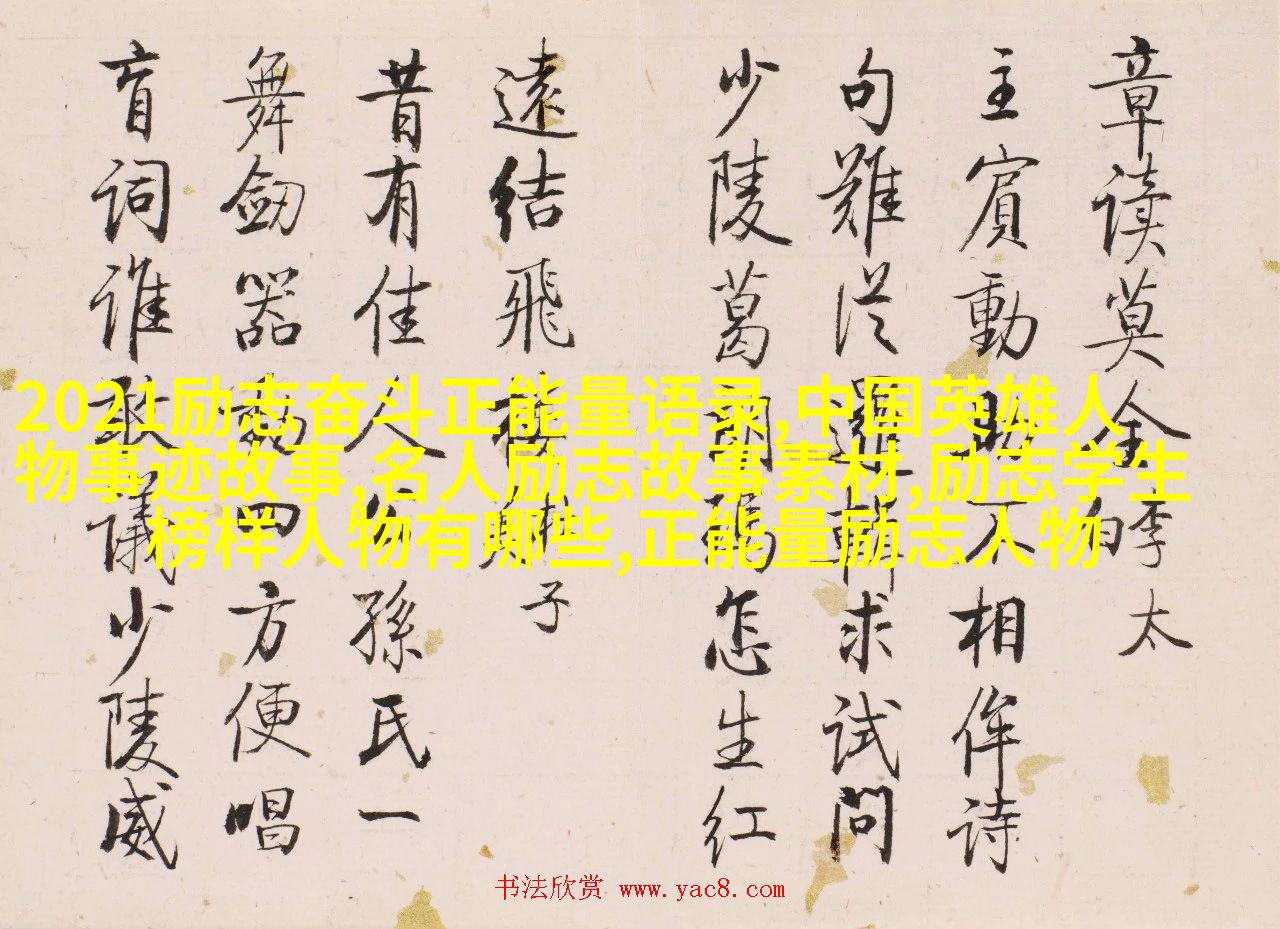 章读莫金
李太
主賓動助不相侔诗
句難従邏輯求试问
少陵葛
怎生红
遠结飛
子
昔有佳人公孫氏一
舞劎器動四方便唱
盲词谁敢議少陵威
2021励志奋斗正能量语录,中国英雄人
物事迹故事,名人励志故事素材,励志学生
榜样人物有哪些,正能量励志人物
书法欣赏 www.yac8.com